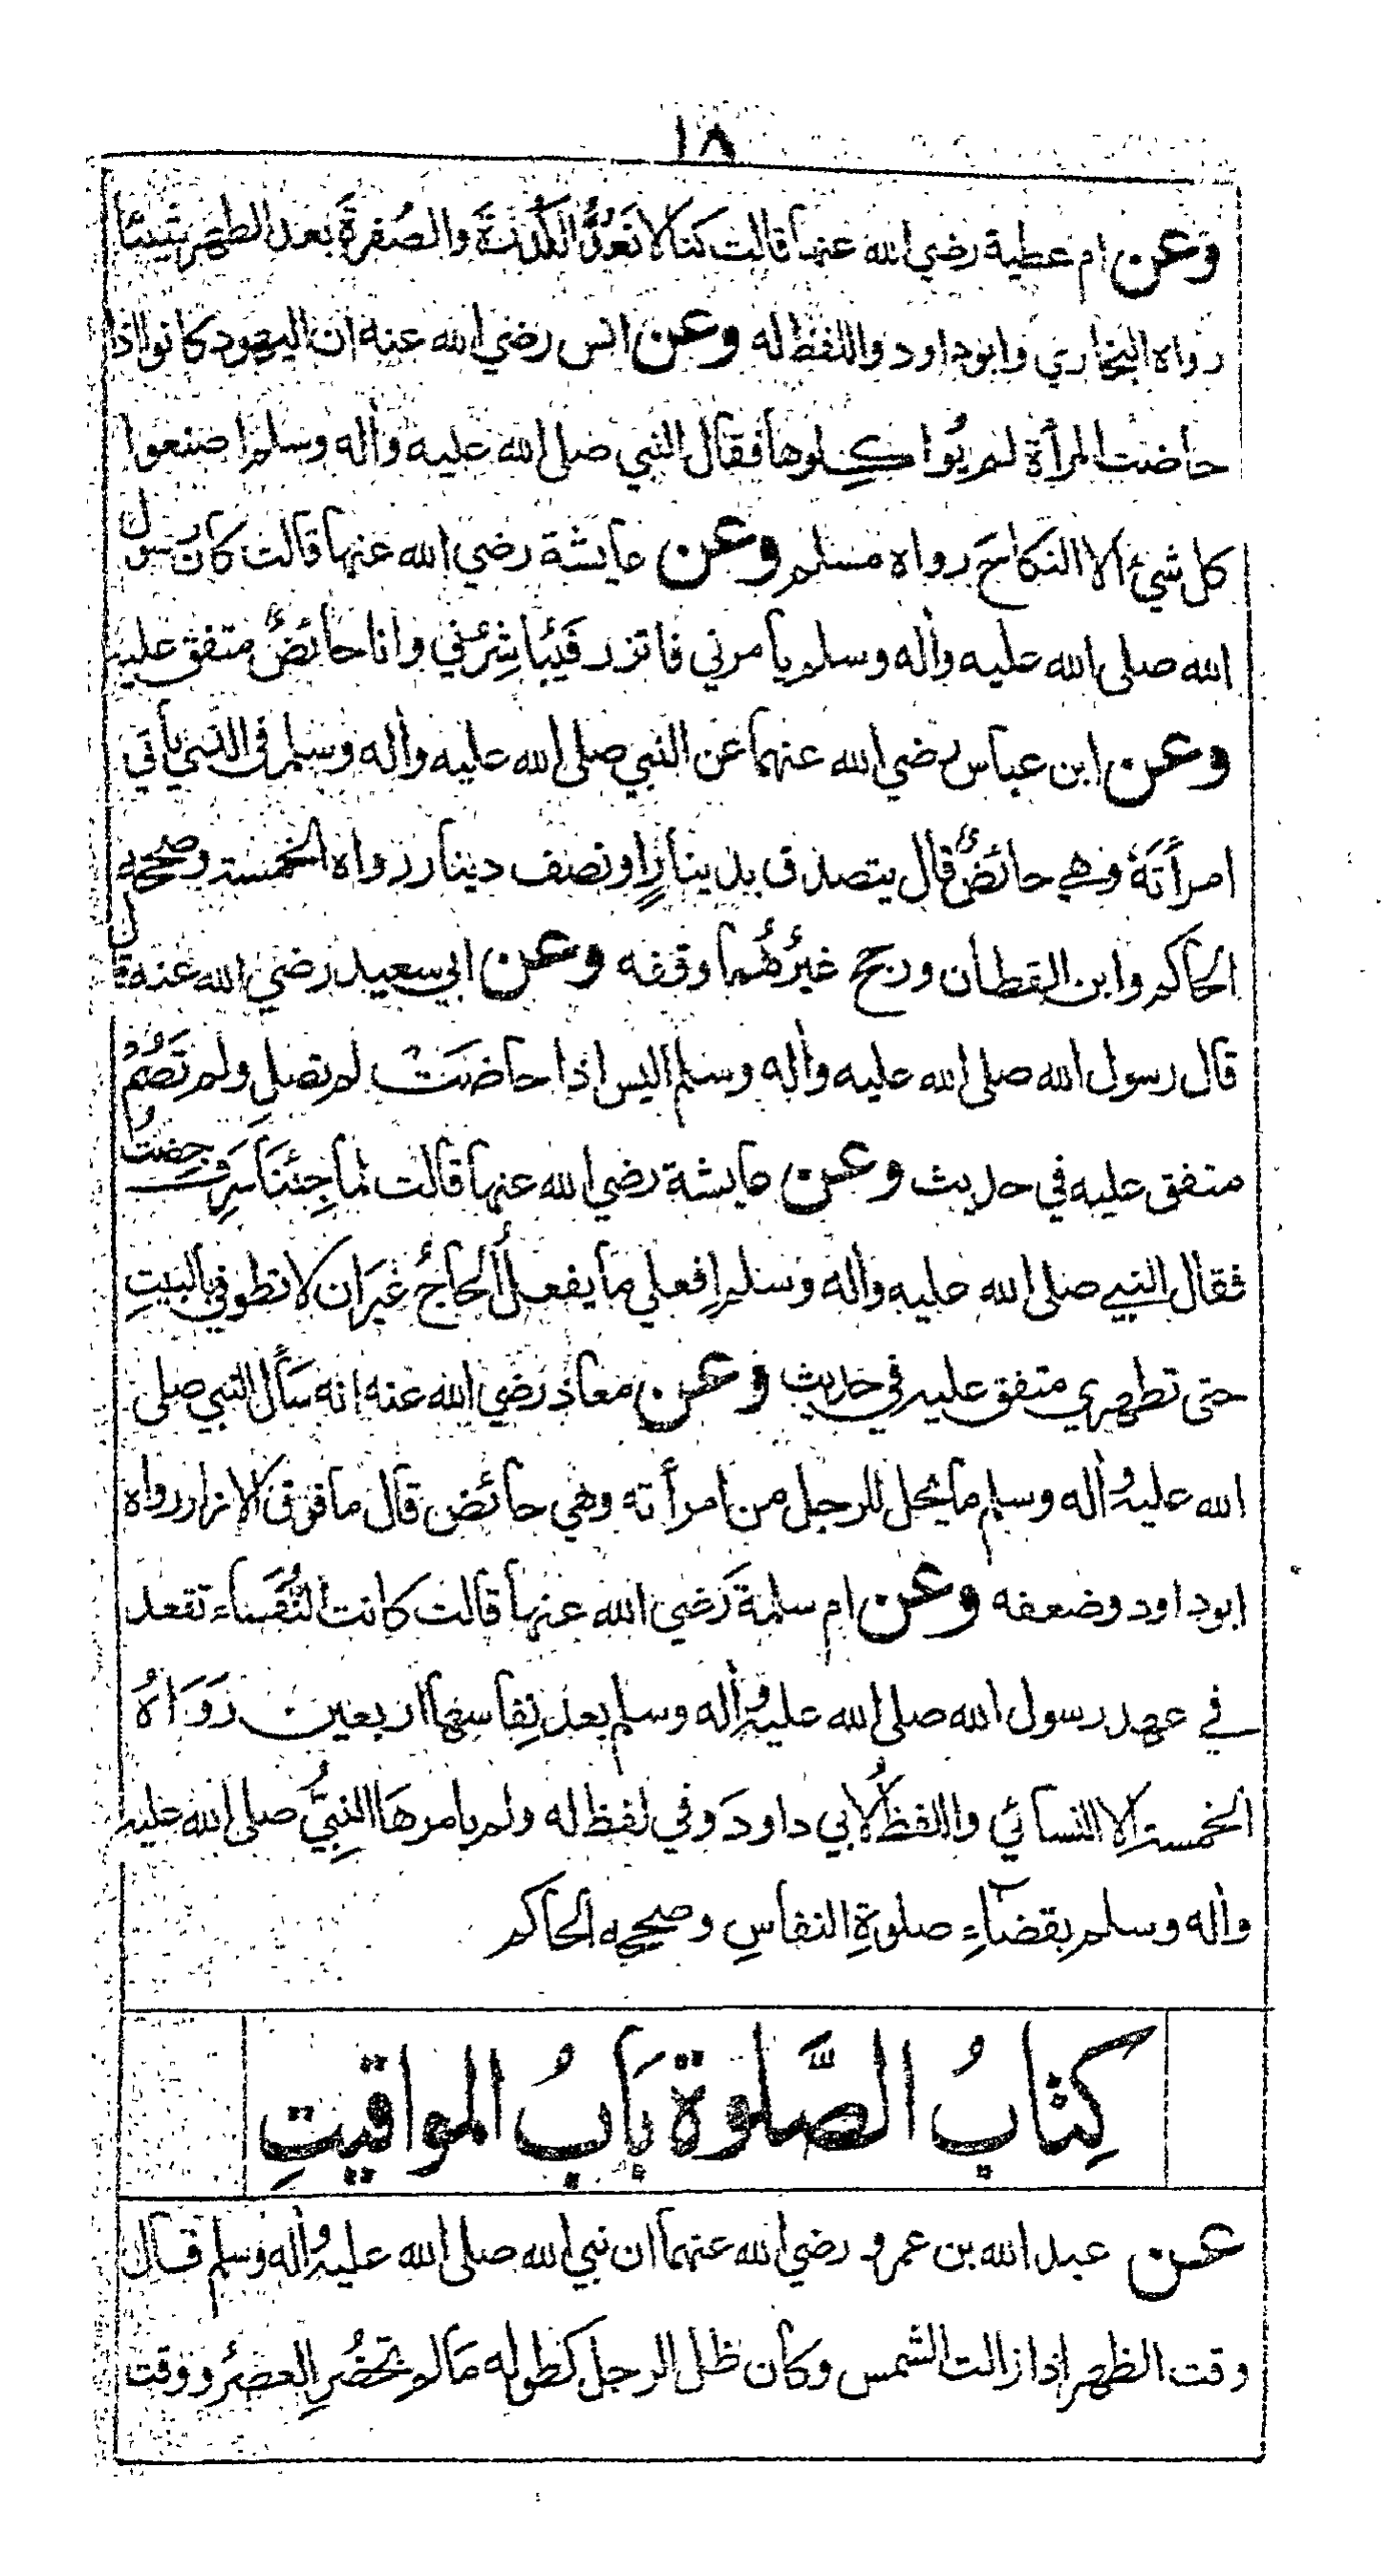 ١٨
وعن ام عطية رضي الله عنها قالت كنا لا نَعُدُّ الكُدْرَةَ والصُفرةَ بعد الطهر شيئا
رواه البخاري وابوداود واللفظ له وعن انس رضي الله عنه ان اليهود كانوا اذا
حاضت المرأة لم يُواكِلوها فقال النبي صلى الله عليه وأله وسلم اصنعوا
كل شيءٍ الا النكاحَ رواه مسلم وعن عايشة رضي الله عنها قالت كان رسول
الله صلى الله عليه وأله وسلم يامرني فاتزر فَيُباشِرُني وانا حائضٌ متفق عليه
وعن ابن عباس رضي الله عنهما عن النبي صلى الله عليه وأله وسلم في الذي يأتي
امرأتَهُ وهي حائضٌ قال يتصدق بدينارٍ او نصف دينار رواه الخمسة وصححه
الحاكم وابن القطان ورجح غيرُهُما وقفه وعن ابي سعيد رضي الله عنه قال
قال رسول الله صلى الله عليه وأله وسلم اليس اذا حاضَتْ لم تصلِ ولم تَصُمْ
متفق عليه في حديث وعن عايشة رضي الله عنها قالت لما جِئنَا سَرِفَ حِضتُ
فقال النبي صلى الله عليه وأله وسلم اِفعلي ما يفعلُ الحاجُ غيرَ ان لا تطوفي بالبيتِ
حتى تطهري متفق عليه في حديث وعن معاذ رضي الله عنه انه سَأَل النبي صلى
الله عليه وأله وسلم ما يحل للرجل من امرأته وهي حائض قال ما فوق الازار رواه
ابوداود وضعفه وعن ام سلمةَ رَضي الله عنها قالت كانت النُفَساء تقعد
في عهد رسول الله صلى الله عليه وأله وسلم بعد نِفاسها اربعين رَوَاهُ
الخمسة الا النسائي واللفظُ لابي داودَ وفي لفظ له ولم يامرهَا النبِيُّ صلى الله عليه
وأله وسلم بقضاءِ صلوةِ النفاسِ وصححه الحاكم
كِتَابُ الصَّلوة بَابُ المواقيتِ
عن عبد الله بن عمرو رضي الله عنهما ان نبي الله صلى الله عليه وأله وسلم قال
وقت الظهر اذا زالت الشمس وكان ظل الرجل كطوله مَا لم تحضُرِ العصرُ ووقت